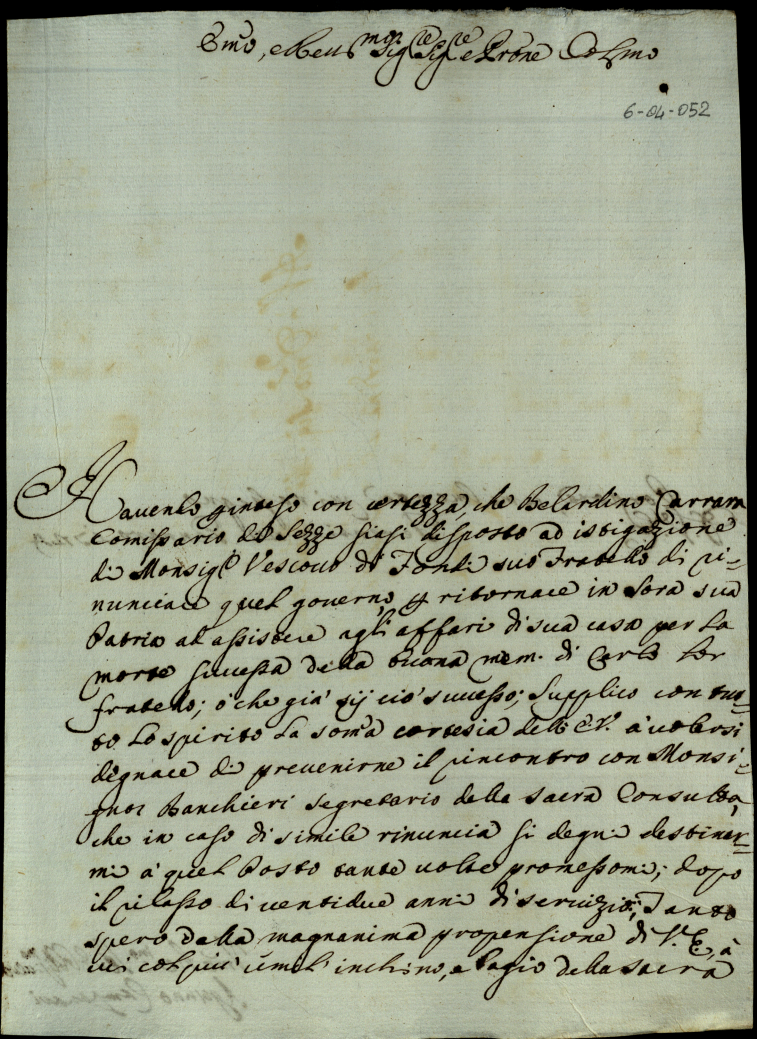 Emo, e Reu.mo Sig.re Sig.re e Prone Colmo
6-04-052
Hauendo inteso con certezza che Belardino Carrara
Comissario di Sezze siasi disposto ad istigazione
di Monsig.r Vescouo di Fondi suo Fratello di ri=
nunciare quel gouerno, e ritornare in Sora sua
Patria ad assistere agli affari di sua casa per la
morte successa della buona mem. di Carlo lor
fratello; ò che già sij ciò successo; Supplico con tut=
to lo spirito la soma cortesia dell'E.V. à uolersi
degnare di preuenirne il rincontro con Monsi=
gnor Banchieri Segretario della Sacra Consulta,
che in caso di simile rinuncia si degni destinar=
mi à quel Posto tante uolte promessomi; dopo
il rilasso di uentidue anni di seruizio; Tanto
spero dalla magnanima propensione di V.E., à
cui col più umil inchino, e bagio della Sacra